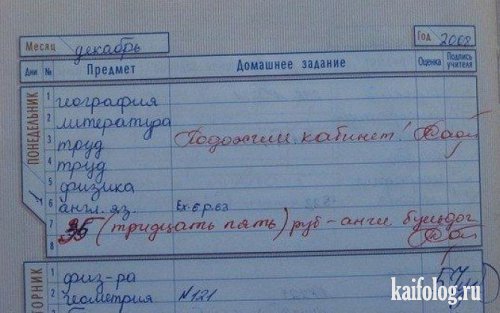 Месяц декабрь Год 2008
Дни № Предмет Домашнее задание Оценка Подпись учителя
ПОНЕДЕЛЬНИК 1
1 география
2 литература
3 труд Подожгли кабинет!
4 труд
5 физика
6 англ. яз Ex. 6 p. 63
7 35 (тридцать пять) руб - англ бульдог
8
ВТОРНИК
1 физ-ра
2 геометрия №121
kaifolog.ru